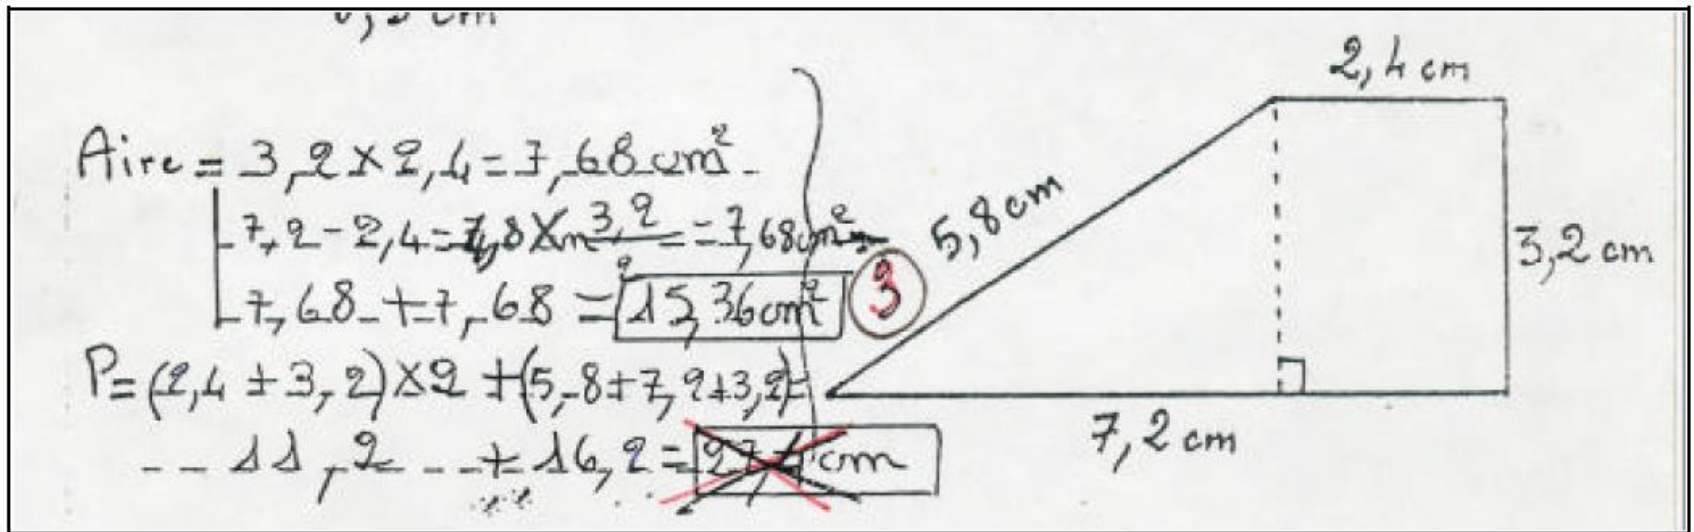 Aire = 3,2 × 2,4 = 7,68 cm²
7,2 - 2,4 = 4,8 × 3,2 = 7,68 cm²
7,68 + 7,68 = 15,36 cm²
3
P = (2,4 + 3,2) × 2 + (5,8 + 7,2 + 3,2) =
11,2 + 16,2 = 27,4 cm
2,4 cm
5,8 cm
3,2 cm
7,2 cm